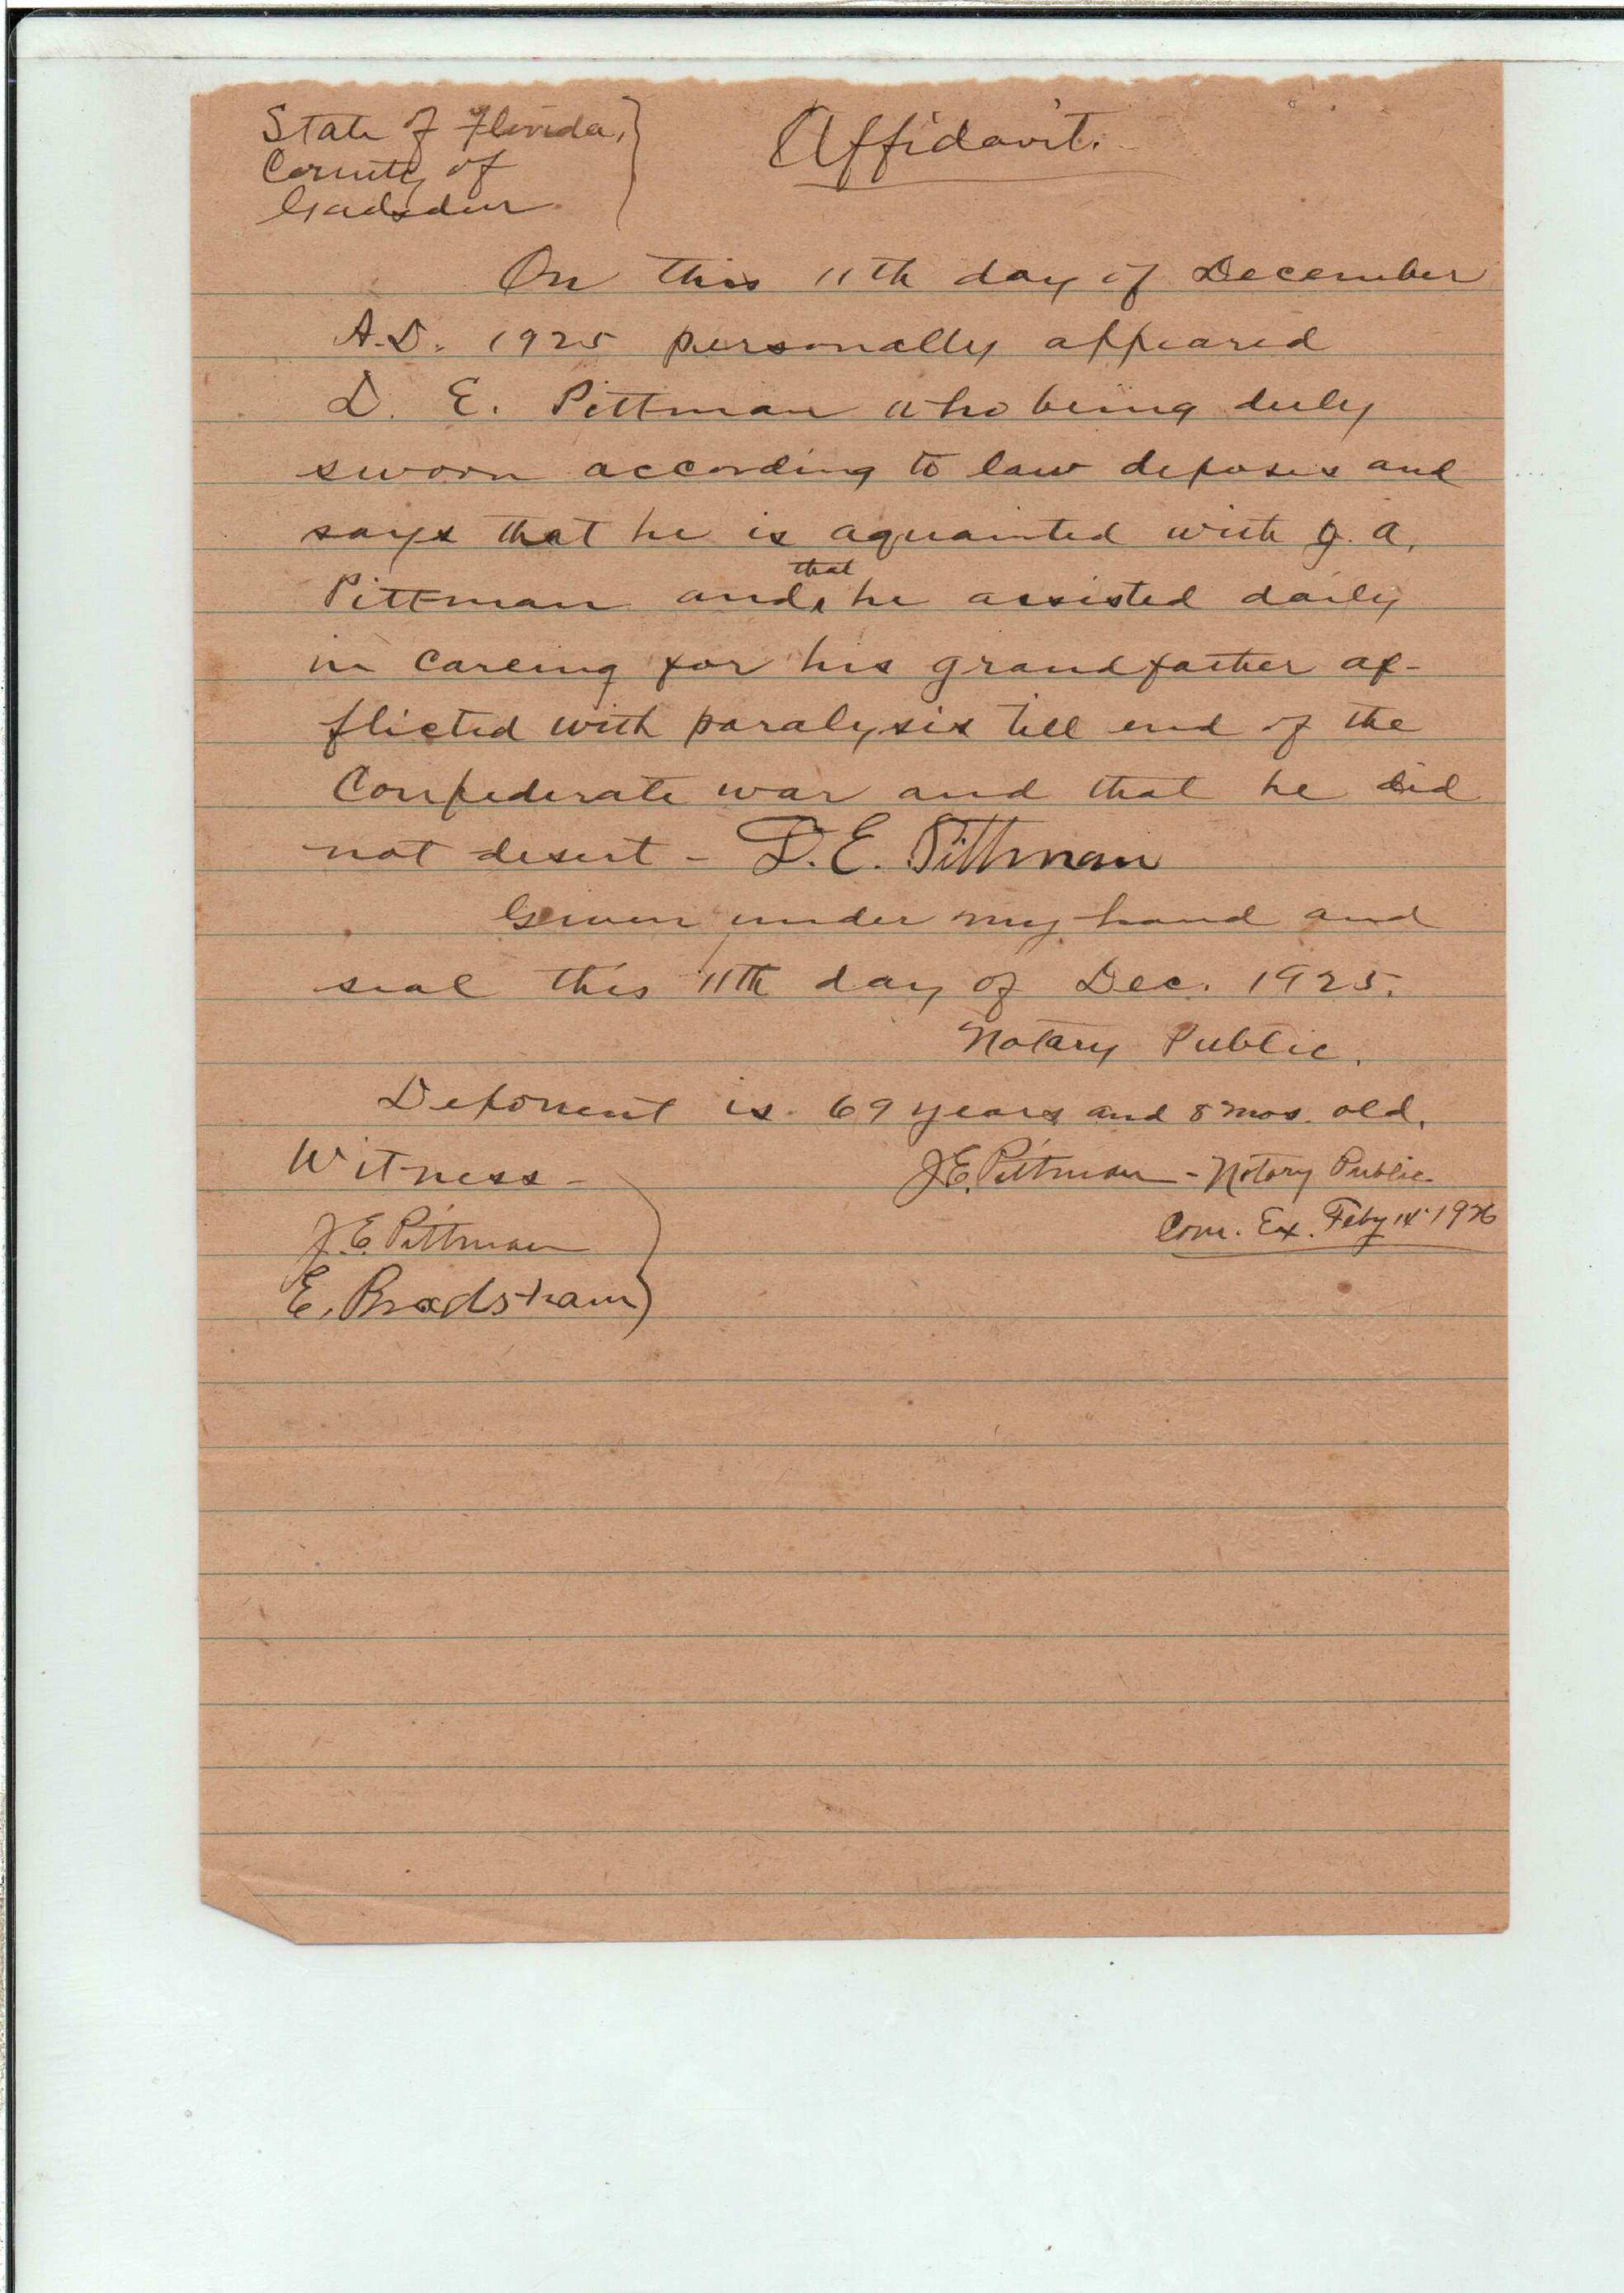 State of Florida,
County of
Gadsden.
Affidavit.
On this 11th day of December
A.D. 1925 personally appeared
D. E. Pittman who being duly
sworn according to law deposes and
says that he is aquainted with J. A.
Pittman and that he assisted daily
in careing for his grandfather af-
flicted with paralysis till end of the
Confederate war and that he did
not desert - D. E. Pittman
Given under my hand and
seal this 11th day of Dec. 1925.
Notary Public.
Deponent is 69 years and 8 mos. old.
Witness -
J. E. Pittman - Notary Public
Com. Ex. Feby 14 1926
J. E. Pittman
E. Bradsham